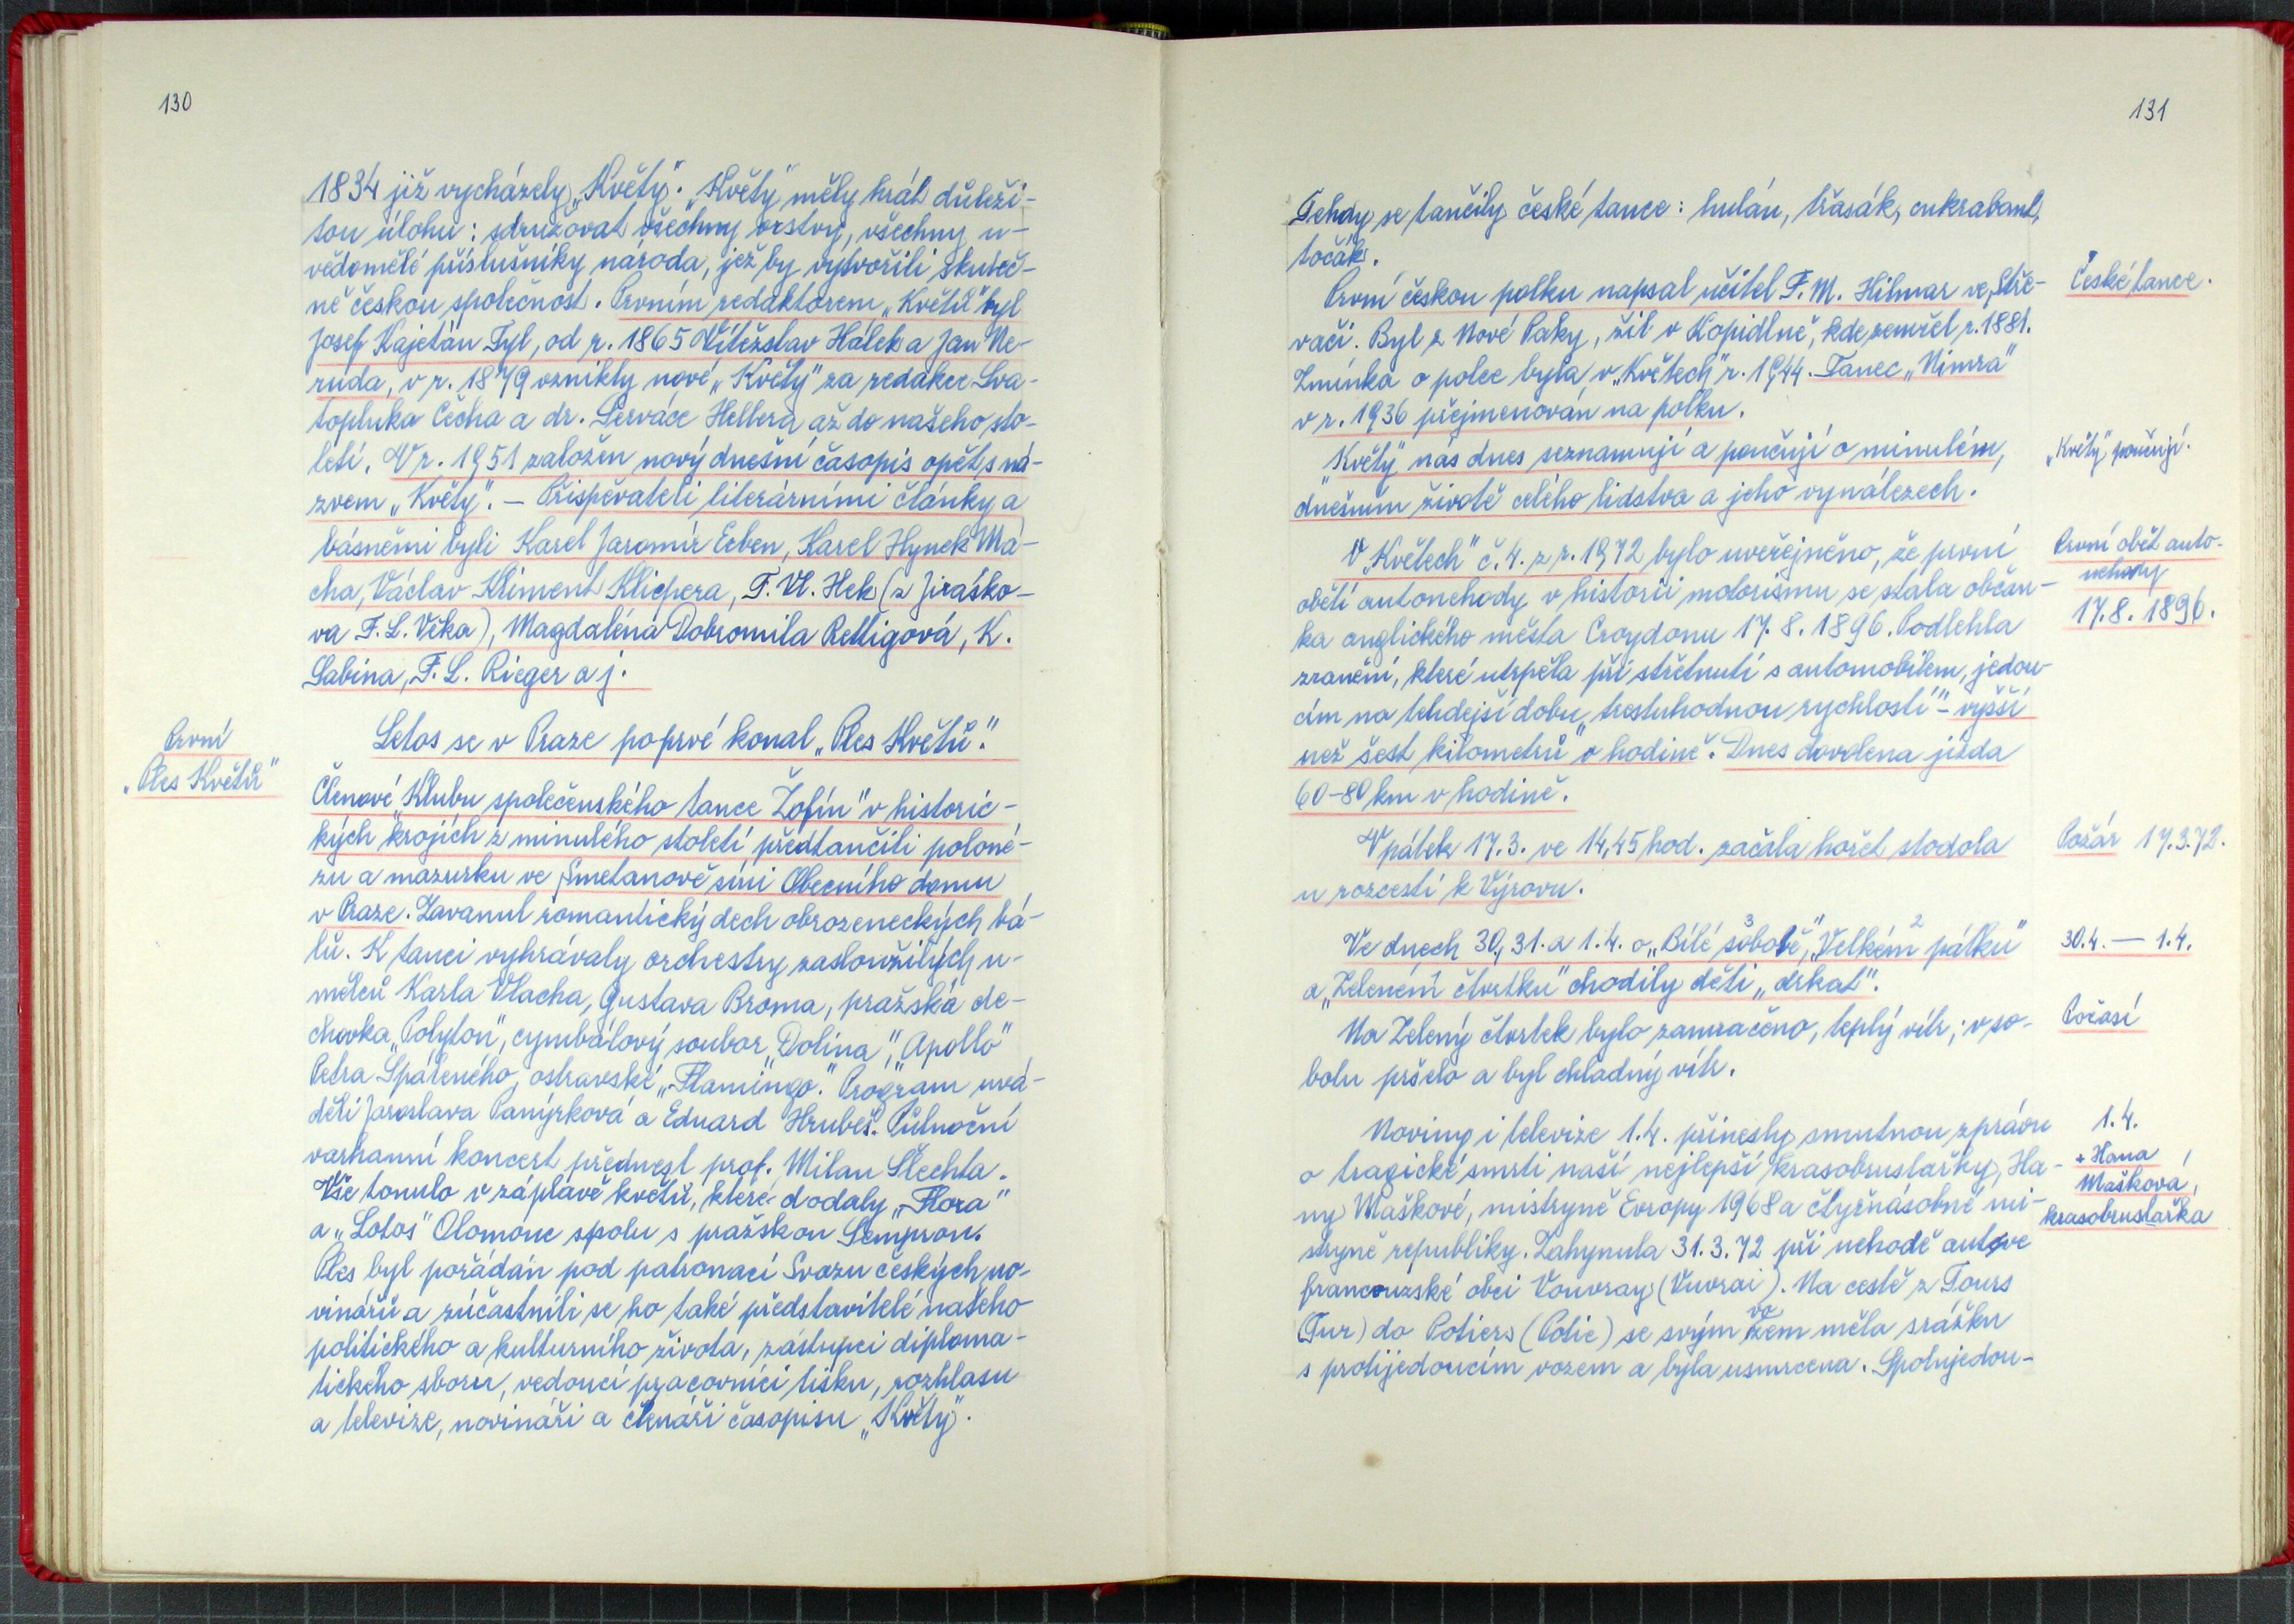 130
1834 již vycházely „Květy". „Květy" měly hrát důleži-
tou úlohu: sdružovat všechny vrstvy, všechny u-
vědomělé příslušníky národa, jež by vytvořili skuteč-
ně českou společnost. Prvním redaktorem „Květů" byl
Josef Kajetán Tyl, od r. 1865 Vítězslav Hálek a Jan Ne-
ruda, v r. 1879 vznikly nové „Květy" za redakce Sva-
topluka Čecha a dr. Serváce Hellera až do našeho sto-
letí. V r. 1951 založen nový dnešní časopis opět s ná-
zvem „Květy". – Přispěvateli literárními články a
básněmi byli Karel Jaromír Erben, Karel Hynek Má-
cha, Václav Kliment Klicpera, F. Vl. Hek (z Jirásko-
va F. L. Věka), Magdaléna Dobromila Rettigová, K.
Sabina, F. L. Rieger a j.
První
„Ples Květů"
Letos se v Praze poprvé konal „Ples Květů".
Členové „Klubu společenského tance Žofín" v historic-
kých krojích z minulého století předtančili poloné-
zu a mazurku ve Smetanově síni Obecního domu
v Praze. Zavanul romantický dech obrozeneckých bá-
lů. K tanci vyhrávaly orchestry zasloužilých u-
mělců Karla Vlacha, Gustava Broma, pražská de-
chovka „Polyton", cymbálový soubor „Dolina", „Apollo"
Petra Spáleného, ostravské „Flamingo". Program uvá-
děli Jaroslava Panýrková a Eduard Hrubeš. Půlnoční
varhanní koncert přednesl prof. Milan Šlechta.
Vše tonulo v záplavě květů, které dodaly „Flora"
a „Lotos" Olomouc spolu s pražskou Sempron.
Ples byl pořádán pod patronací Svazu českých no-
vinářů a zúčastnili se ho také představitelé našeho
politického a kulturního života, zástupci diploma-
tického sboru, vedoucí pracovníci tisku, rozhlasu
a televize, novináři a čtenáři časopisu „Květy".
131
Tehdy se tančily české tance: hulán, třasák, cukrabant,
točák.
První českou polku napsal učitel F. M. Hilmar ve Stře-
vači. Byl z Nové Paky, žil v Kopidlně, kde zemřel r. 1881.
Zmínka o polce byla v „Květech" r. 1944. Tanec „Nimra"
v r. 1936 přejmenován na polku.
České tance.
„Květy" nás dnes seznamují a poučují o minulém,
dnešním životě celého lidstva a jeho vynálezech.
„Květy" poučují.
V „Květech" č. 4. z r. 1972 bylo uveřejněno, že první
obětí autonehody v historii motorismu se stala občan-
ka anglického města Croydonu 17. 8. 1896. Podlehla
zranění, které utrpěla při střetnutí s automobilem, jedou-
cím na tehdejší dobu „trestuhodnou rychlostí" – vyšší
než šest kilometrů v hodině. Dnes dovolena jízda
60–80 km v hodině.
První oběť auto-
nehody
17. 8. 1896.
V pátek 17. 3. ve 14,45 hod. začala hořet stodola
u rozcestí k Výrovu.
Požár 17. 3. 72.
Ve dnech 30., 31. a 1. 4. o „Bílé sobotě", 3 „Velkém pátku" 2
a „Zeleném čtvrtku" 1 chodily děti „drkat".
30. 4. — 1. 4.
Na Zelený čtvrtek bylo zamračeno, teplý vítr; v so-
botu pršelo a byl chladný vítr.
Počasí
Noviny i televize 1. 4. přinesly smutnou zprávu
o tragické smrti naší nejlepší krasobruslařky, Ha-
ny Maškové, mistryně Evropy 1968 a čtyřnásobné mi-
stryně republiky. Zahynula 31. 3. 72 při nehodě aut ve
francouzské obci Vouvray (Vuvrai). Na cestě z Tours
(Tur) do Potiers (Potie) se svým vozem měla srážku
s protijedoucím vozem a byla usmrcena. Spolujedou-
1. 4.
+ Hana
Mašková,
krasobruslařka